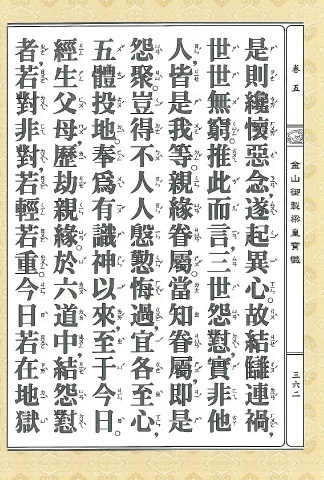 卷五
金山御製梁皇寶懺
三六二
是則纔懷惡念，遂起異心。故結讎連禍，
世世無窮。推此而言，三世怨懟，實非他
人，皆是我等親緣眷屬。當知眷屬，即是
怨聚。豈得不人人慇懃悔過，宜各至心，
五體投地。奉為有識神以來，至于今日。
經生父母，歷劫親緣，於六道中，結怨懟
者，若對非對，若輕若重。今日若在地獄